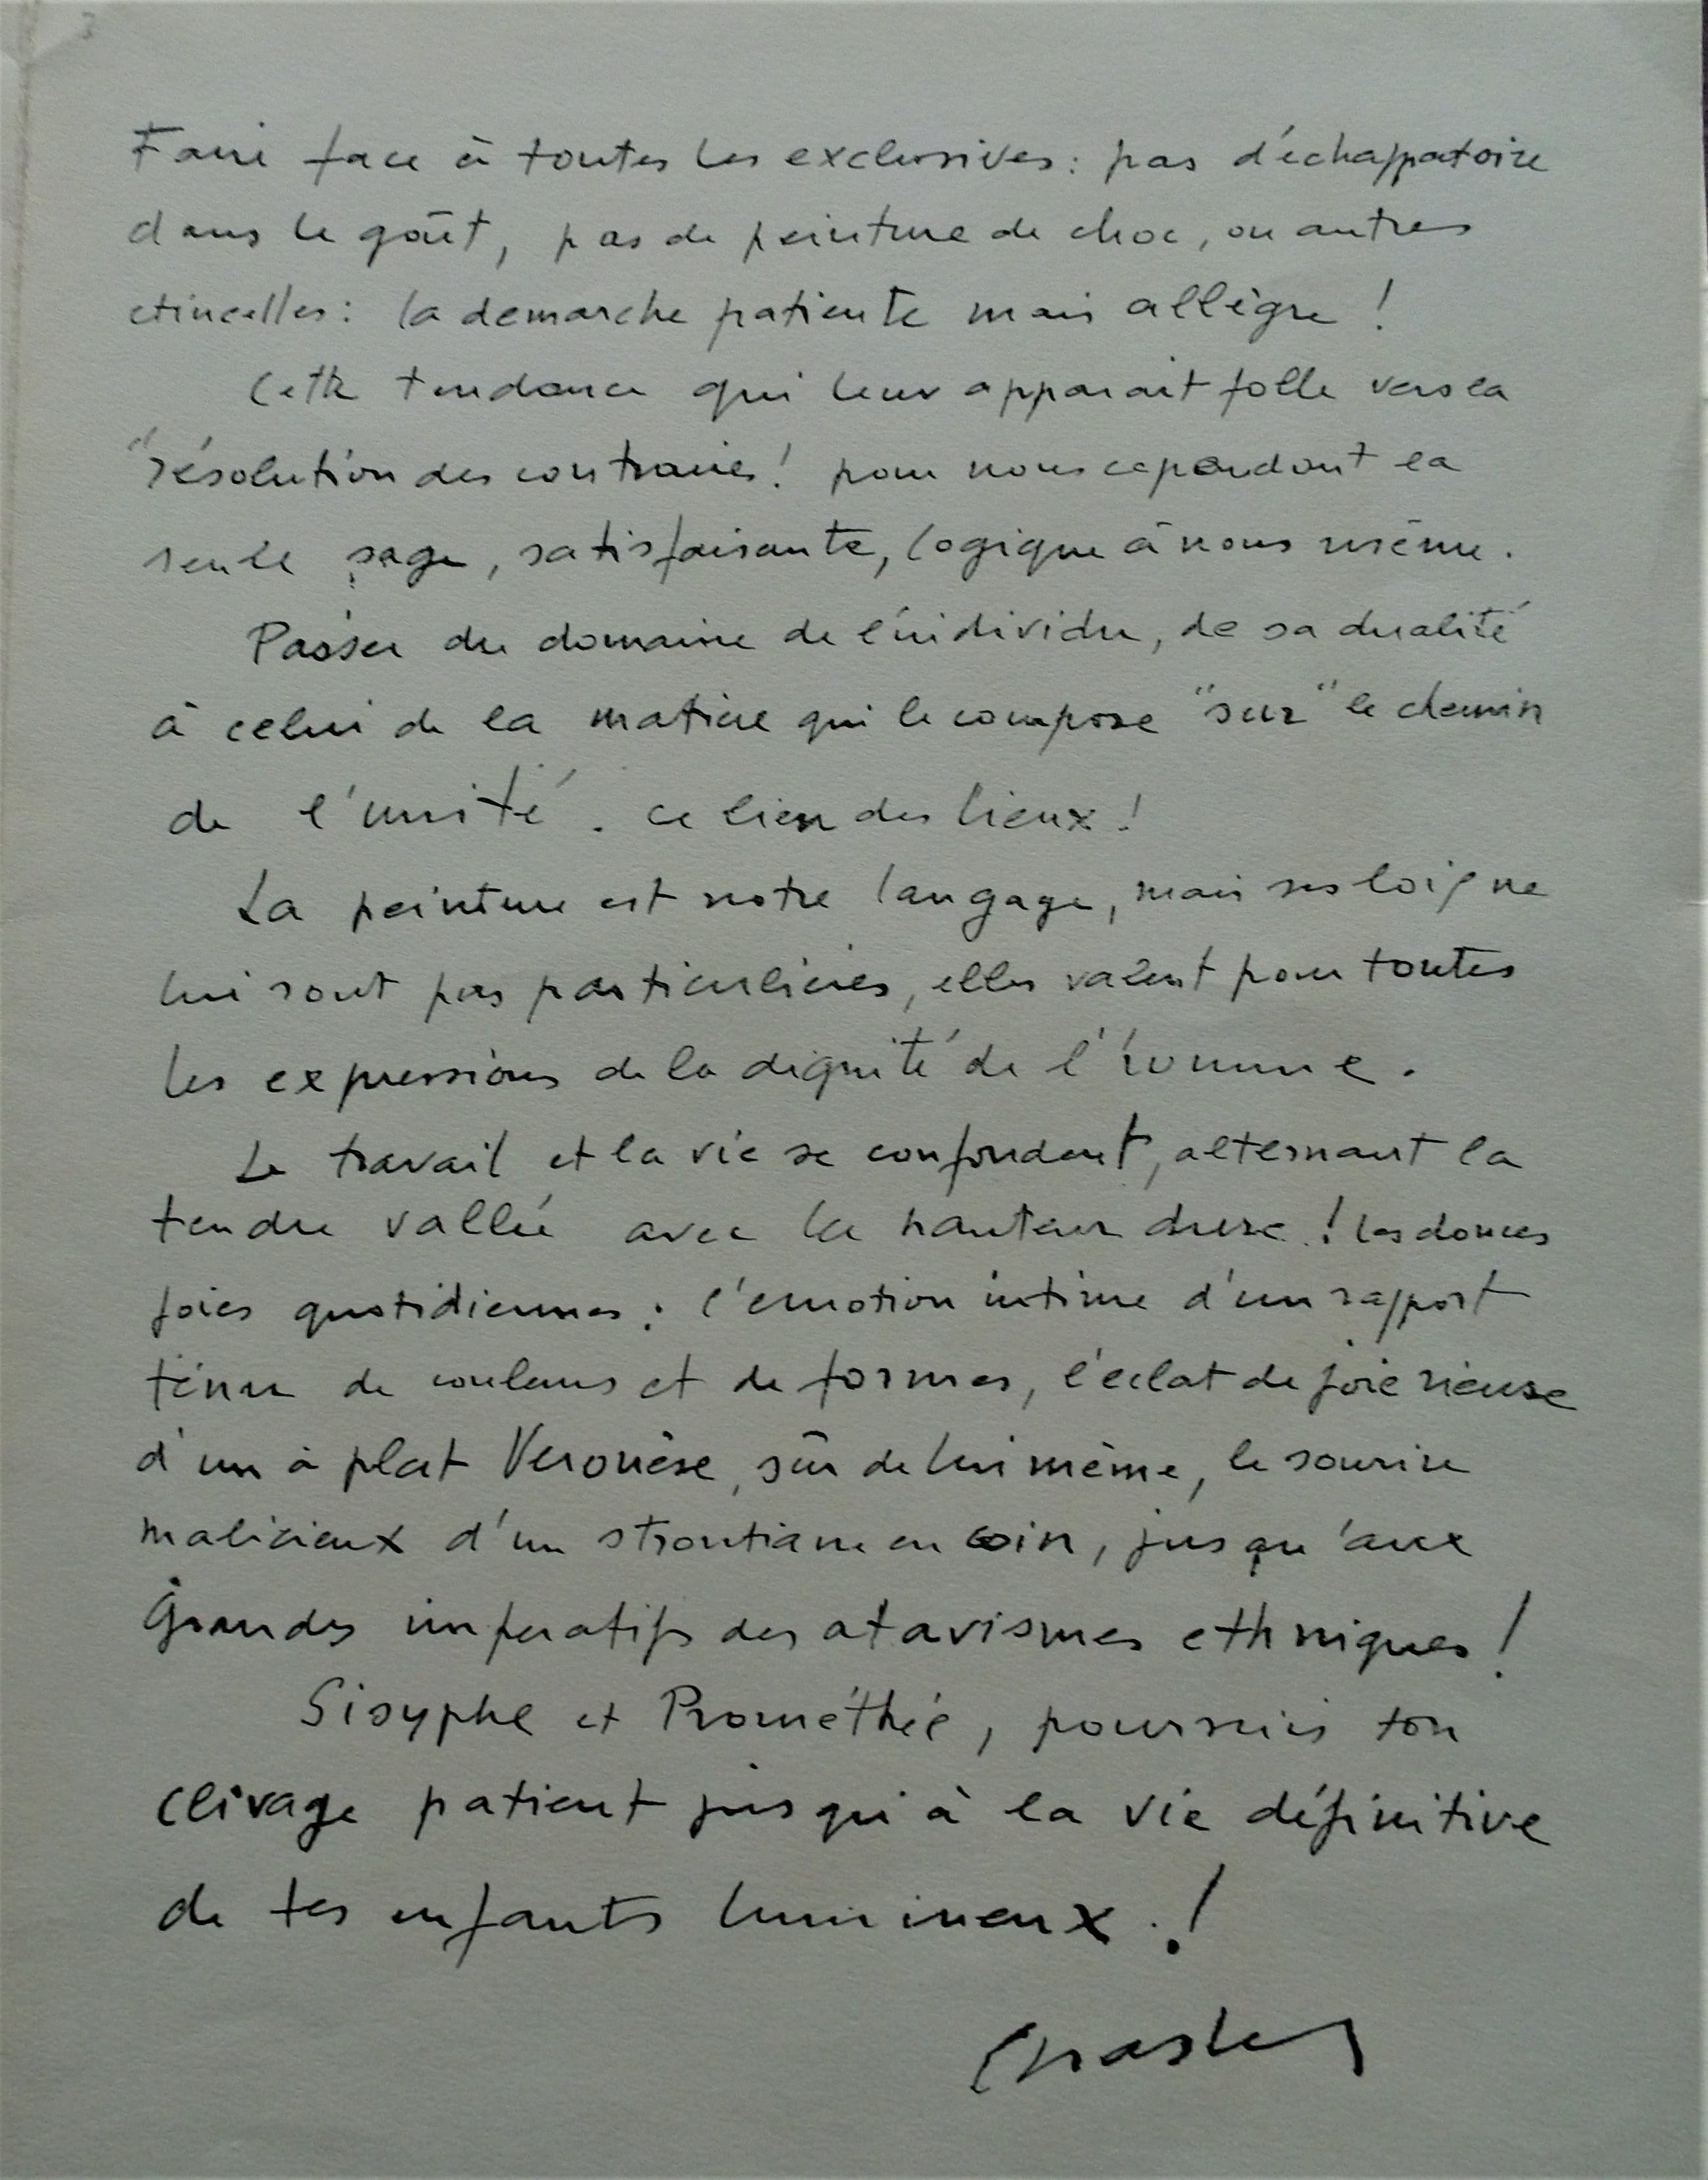 Faire face à toutes les exclusives : pas d'échappatoire
dans le goût, pas de peinture de choc, ou autres
etincelles : la demarche patiente mais allègre !
Cette tendance qui leur apparait folle vers la
"résolution des contraires ! pour nous cependant la
seule sage, satisfaisante, logique à nous même.
Passer du domaine de l'individu, de sa dualité
à celui de la matiere qui le compose "sur" le chemin
de l'unité. ce lien des lieux !
La peinture est notre langage, mais ses lois ne
lui sont pas particulières, elles valent pour toutes
les expressions de la dignité de l'homme.
Le travail et la vie se confondent, alternant la
tendre vallée avec la hauteur dure ! les douces
joies quotidiennes : l'emotion intime d'un rapport
ténu de couleurs et de formes, l'éclat de joie rieuse
d'un à plat Veronèse, sûr de lui même, le sourire
malicieux d'un strontiane en coin, jusqu'aux
Grands imperatifs des atavismes ethniques !
Sisyphe et Prométhée, poursuis ton
clivage patient jusqu'à la vie définitive
de tes enfants lumineux !